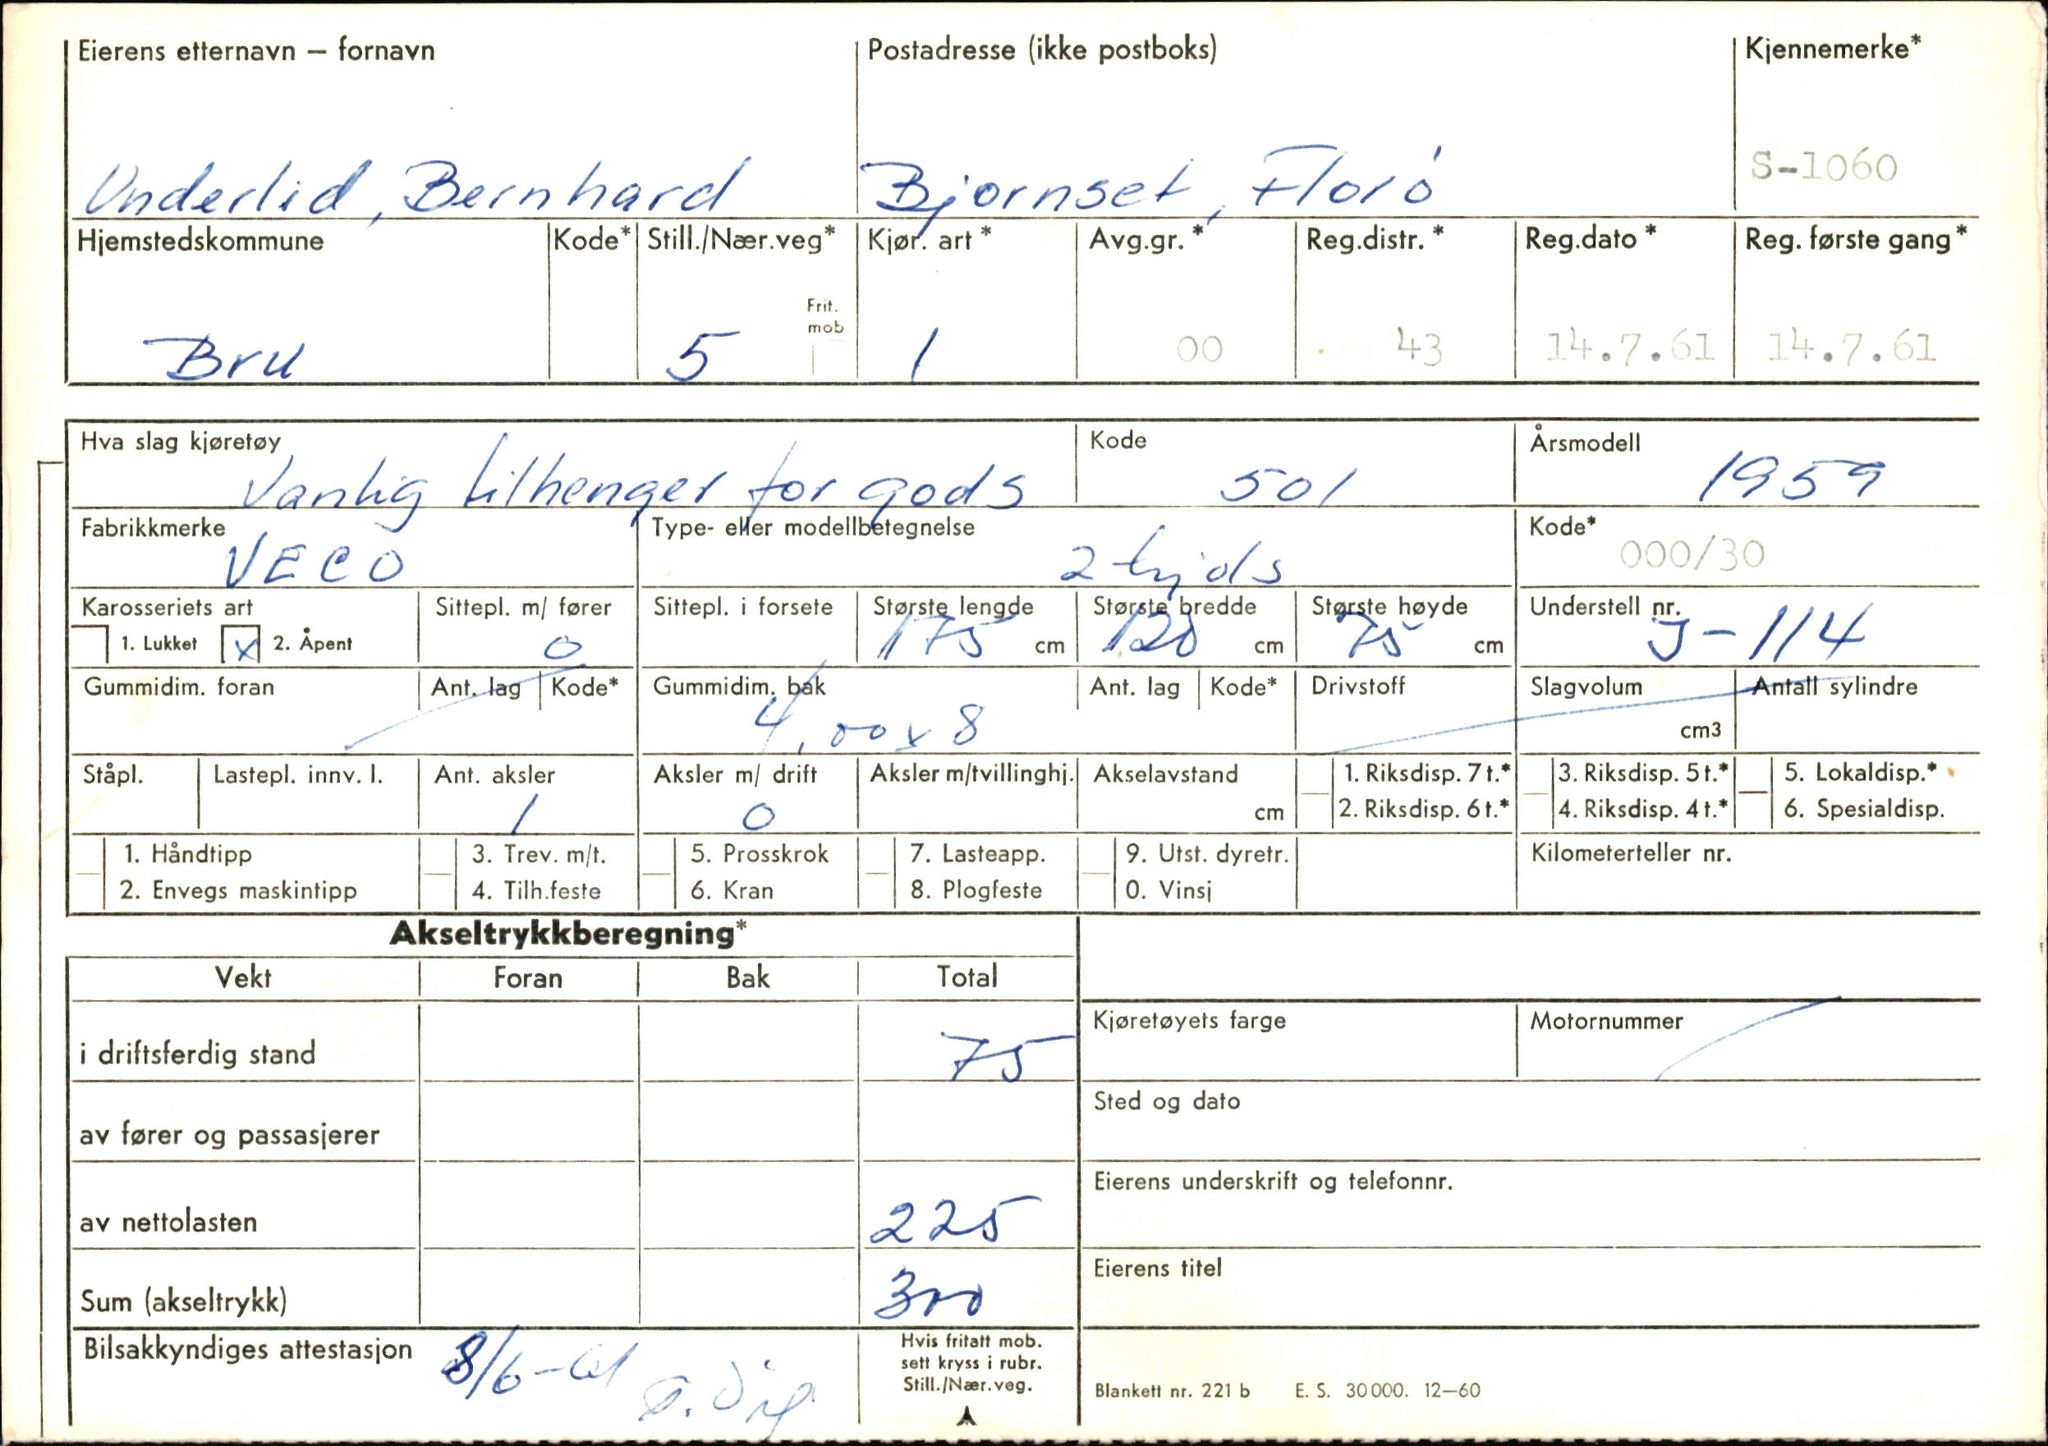 Eierens etternavn – fornavn Postadresse (ikke postboks) Kjennemerke*
Underlid, Bernhard Bjørnset, Florö S-1060
Hjemstedskommune Kode* Still./Nær.veg* Kjør. art * Avg.gr. * Reg.distr. * Reg.dato * Reg. første gang *
Frit.
mob
Bru 5 1 00 43 14.7.61 14.7.61
Hva slag kjøretøy Kode Årsmodell
Vanlig tilhenger for gods 501 1959
Fabrikkmerke Type- eller modellbetegnelse Kode*
VECO 2 hjuls 000/30
Karosseriets art Sittepl. m/ fører Sittepl. i forsete Største lengde Største bredde Største høyde Understell nr.
1. Lukket x 2. Åpent 0 175 cm 120 cm 75 cm J-114
Gummidim. foran Ant. lag Kode* Gummidim. bak Ant. lag Kode* Drivstoff Slagvolum Antall sylindre
4,00 x 8 cm3
Ståpl. Lastepl. innv. l. Ant. aksler Aksler m/ drift Aksler m/tvillinghj. Akselavstand 1. Riksdisp. 7 t.* 3. Riksdisp. 5 t.* 5. Lokaldisp.*
1 0 cm 2. Riksdisp. 6 t.* 4. Riksdisp. 4 t.* 6. Spesialdisp.
1. Håndtipp 3. Trev. m/t. 5. Prosskrok 7. Lasteapp. 9. Utst. dyretr. Kilometerteller nr.
2. Envegs maskintipp 4. Tilh.feste 6. Kran 8. Plogfeste 0. Vinsj
Akseltrykkberegning*
Vekt Foran Bak Total
Kjøretøyets farge Motornummer
i driftsferdig stand 75
Sted og dato
av fører og passasjerer
Eierens underskrift og telefonnr.
av nettolasten 225
Eierens titel
Sum (akseltrykk) 300
Bilsakkyndiges attestasjon 8/6-61
Hvis fritatt mob.
sett kryss i rubr.
Still./Nær.veg.
Blankett nr. 221 b E. S. 30000. 12–60